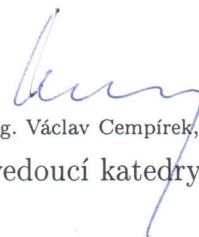 g. Václav Cempírek,
vedoucí katedry